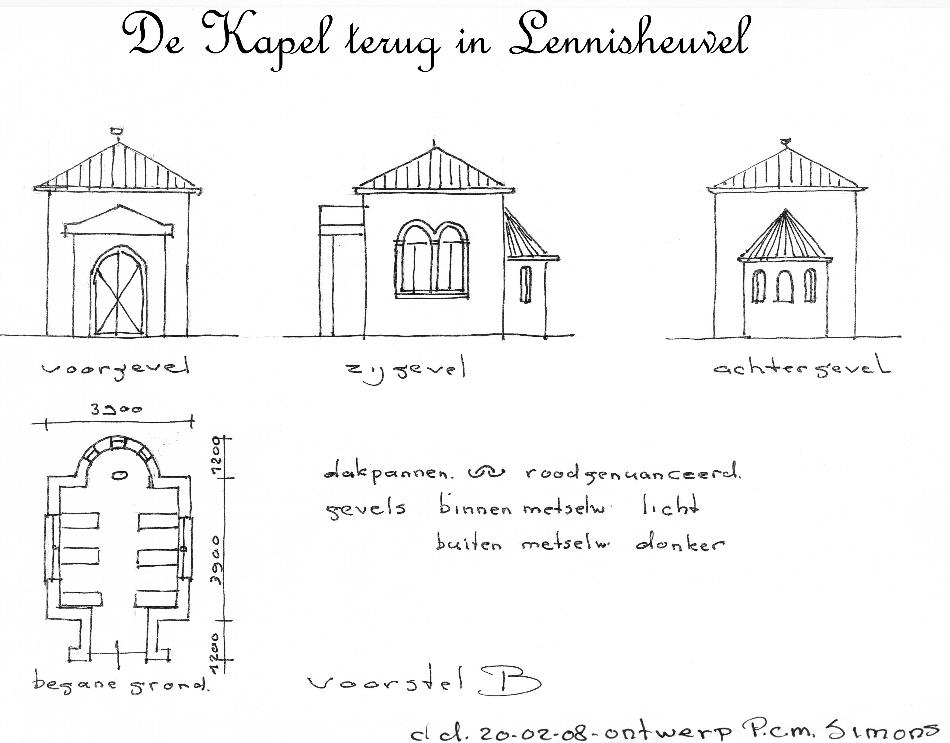 De Kapel terug in Lennisheuvel
voorgevel
zijgevel
achtergevel
3900
1200
3900
1200
begane grond.
dakpannen. roodgenuanceerd.
gevels binnen metselw. licht
buiten metselw. donker
voorstel B
d.d. 20-02-08-ontwerp P.c.m. Simons